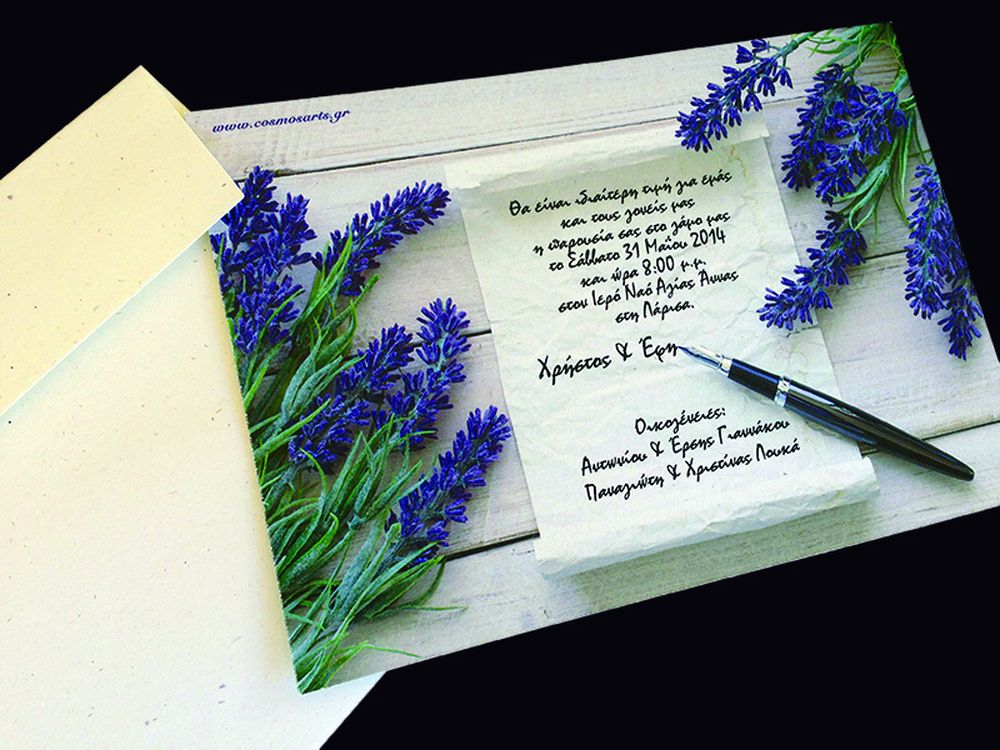 www.cosmosarts.gr
Θα είναι ιδιαίτερη τιμή για εμάς
και τους γονείς μας
η παρουσία σας στο γάμο μας
το Σάββατο 31 Μαΐου 2014
και ώρα 8:00 μ.μ.
στον Ιερό Ναό Αγίας Άννας
στη Λάρισα.
Χρήστος & Έφη
Οικογένειες:
Αντωνίου & Έρσης Γιαννάκου
Παναγιώτη & Χριστίνας Λουκά